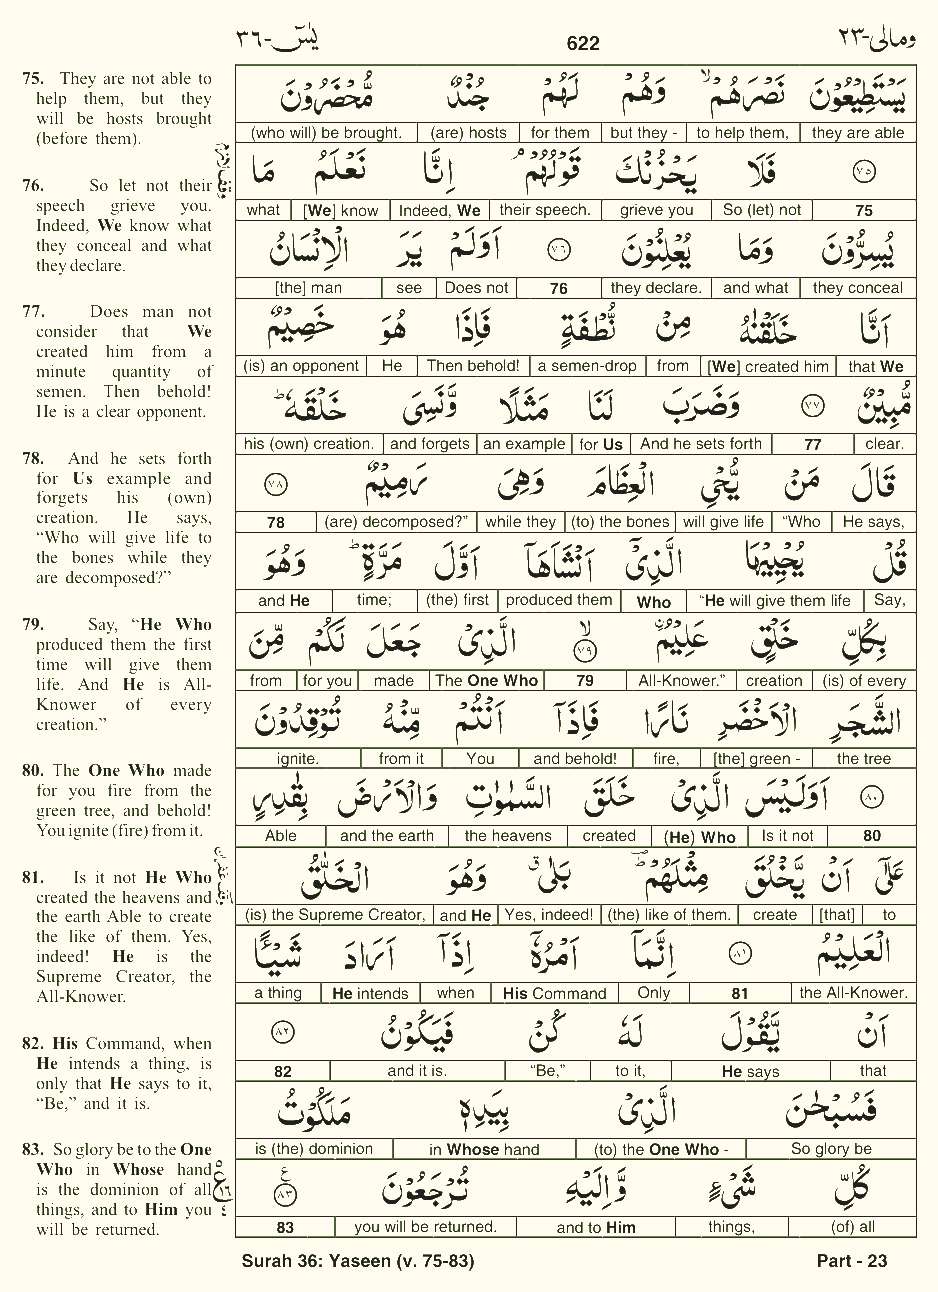 ومالی-٢٣
622
یٰسٓ-٣٦
75. They are not able to
help them, but they
will be hosts brought
(before them).
76. So let not their
speech grieve you.
Indeed, We know what
they conceal and what
they declare.
77. Does man not
consider that We
created him from a
minute quantity of
semen. Then behold!
He is a clear opponent.
78. And he sets forth
for Us example and
forgets his (own)
creation. He says,
“Who will give life to
the bones while they
are decomposed?”
79. Say, “He Who
produced them the first
time will give them
life. And He is All-
Knower of every
creation.”
80. The One Who made
for you fire from the
green tree, and behold!
You ignite (fire) from it.
81. Is it not He Who
created the heavens and
the earth Able to create
the like of them. Yes,
indeed! He is the
Supreme Creator, the
All-Knower.
82. His Command, when
He intends a thing, is
only that He says to it,
“Be,” and it is.
83. So glory be to the One
Who in Whose hand
is the dominion of all
things, and to Him you
will be returned.
يَسْتَطِيْعُوْنَ نَصْرَهُمْ ۙ وَهُمْ لَهُمْ جُنْدٌ مُّحْضَرُوْنَ
(who will) be brought. (are) hosts for them but they - to help them, they are able
﴿٧٥﴾ فَلَا يَحْزُنْكَ قَوْلُهُمْ ۘ اِنَّا نَعْلَمُ مَا
what [We] know Indeed, We their speech. grieve you So (let) not 75
يُسِرُّوْنَ وَمَا يُعْلِنُوْنَ ﴿٧٦﴾ اَوَلَمْ يَرَ الْاِنْسَانُ
[the] man see Does not 76 they declare. and what they conceal
اَنَّا خَلَقْنٰهُ مِنْ نُّطْفَةٍ فَاِذَا هُوَ خَصِيْمٌ
(is) an opponent He Then behold! a semen-drop from [We] created him that We
مُّبِيْنٌ ﴿٧٧﴾ وَضَرَبَ لَنَا مَثَلًا وَّنَسِىَ خَلْقَهٗ ؕ
his (own) creation. and forgets an example for Us And he sets forth 77 clear.
قَالَ مَنْ يُّحْىِ الْعِظَامَ وَهِىَ رَمِيْمٌ ﴿٧٨﴾
78 (are) decomposed?” while they (to) the bones will give life “Who He says,
قُلْ يُحْيِيْهَا الَّذِىْۤ اَنْشَاَهَاۤ اَوَّلَ مَرَّةٍ ؕ وَهُوَ
and He time; (the) first produced them Who “He will give them life Say,
بِكُلِّ خَلْقٍ عَلِيْمُ ۙ﴿٧٩﴾ الَّذِىْ جَعَلَ لَكُمْ مِّنَ
from for you made The One Who 79 All-Knower.” creation (is) of every
الشَّجَرِ الْاَخْضَرِ نَارًا فَاِذَاۤ اَنْتُمْ مِّنْهُ تُوْقِدُوْنَ
ignite. from it You and behold! fire, [the] green - the tree
﴿٨٠﴾ اَوَلَيْسَ الَّذِىْ خَلَقَ السَّمٰوٰتِ وَالْاَرْضَ بِقٰدِرٍ
Able and the earth the heavens created (He) Who Is it not 80
عَلٰٓى اَنْ يَّخْلُقَ مِثْلَهُمْ ؕ بَلٰى ۚ وَهُوَ الْخَلّٰقُ
(is) the Supreme Creator, and He Yes, indeed! (the) like of them. create [that] to
الْعَلِيْمُ ﴿٨١﴾ اِنَّمَاۤ اَمْرُهٗۤ اِذَاۤ اَرَادَ شَيْــًٔا
a thing He intends when His Command Only 81 the All-Knower.
اَنْ يَّقُوْلَ لَهٗ كُنْ فَيَكُوْنُ ﴿٨٢﴾
82 and it is. “Be,” to it, He says that
فَسُبْحٰنَ الَّذِىْ بِيَدِهٖ مَلَكُوْتُ
is (the) dominion in Whose hand (to) the One Who - So glory be
كُلِّ شَىْءٍ وَّاِلَيْهِ تُرْجَعُوْنَ ﴿٨٣﴾
83 you will be returned. and to Him things, (of) all
Surah 36: Yaseen (v. 75-83) Part - 23